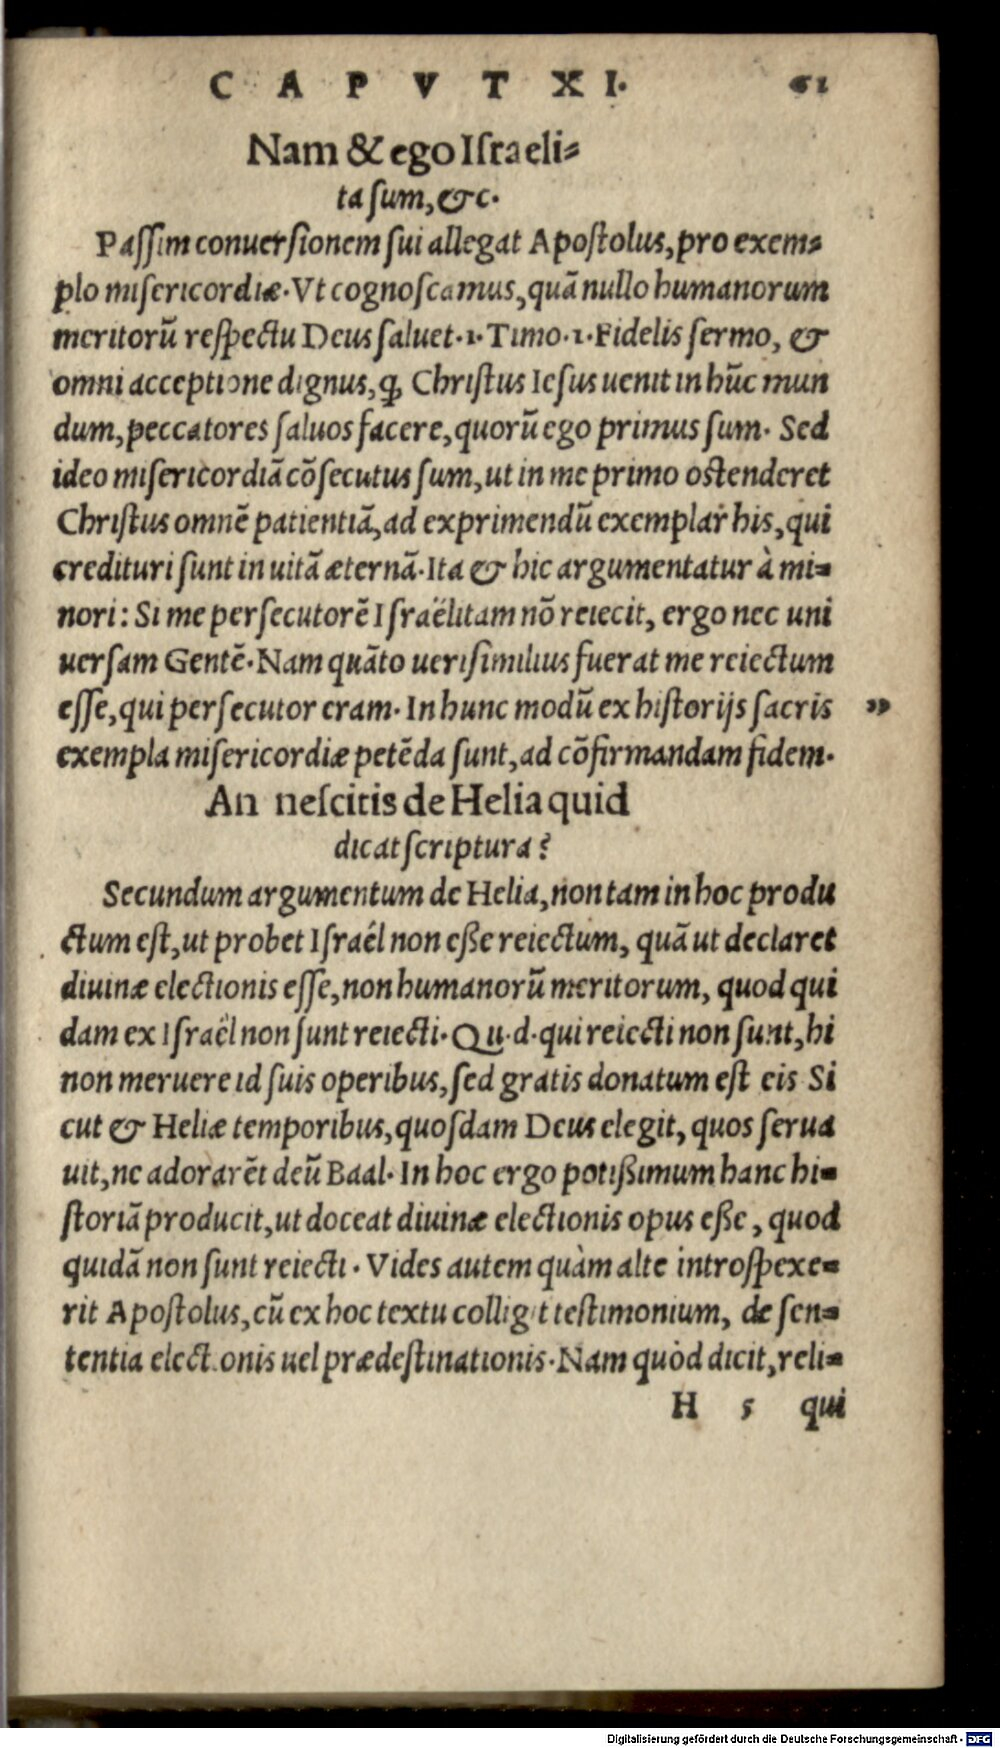 CAPVT XI. 61
Nam & ego Iſraeli-
ta ſum, &c.
Paſſim conuerſionem ſui allegat Apoſtolus, pro exem-
plo miſericordiæ. Vt cognoſcamus, quā nullo humanorum
meritorū reſpectu Deus ſaluet. 1. Timo. 1. Fidelis ſermo, &
omni acceptione dignus, ꝙ Chriſtus Ieſus uenit in hūc mun
dum, peccatores ſaluos facere, quorū ego primus ſum. Sed
ideo miſericordiā cōſecutus ſum, ut in me primo oſtenderet
Chriſtus omnē patientiā, ad exprimendū exemplar his, qui
credituri ſunt in uitā æternā. Ita & hic argumentatur à mi-
nori: Si me perſecutorē Iſraëlitam nō reiecit, ergo nec uni
uerſam Gentē. Nam quāto ueriſimilius fuerat me reiectum
eſſe, qui perſecutor eram. In hunc modū ex hiſtorijs ſacris „
exempla miſericordiæ petēda ſunt, ad cōfirmandam fidem.
An neſcitis de Helia quid
dicat ſcriptura?
Secundum argumentum de Helia, non tam in hoc produ
ctum eſt, ut probet Iſraël non eſſe reiectum, quā ut declaret
diuinæ electionis eſſe, non humanorū meritorum, quod qui
dam ex Iſraël non ſunt reiecti. Qu. d. qui reiecti non ſunt, hi
non meruere id ſuis operibus, ſed gratis donatum eſt eis Si
cut & Heliæ temporibus, quoſdam Deus elegit, quos ſerua
uit, ne adorarēt deū Baal. In hoc ergo potißimum hanc hi-
ſtoriā producit, ut doceat diuinæ electionis opus eße, quod
quidā non ſunt reiecti. Vides autem quàm alte introſpexe-
rit Apoſtolus, cū ex hoc textu colligit teſtimonium, de ſen-
tentia electionis uel prædeſtinationis. Nam quòd dicit, reli-
H 5 qui
Digitalisierung gefördert durch die Deutsche Forschungsgemeinschaft - DFG